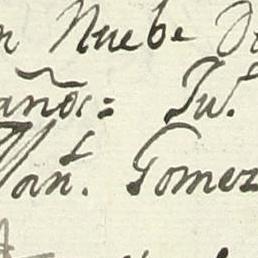 n Nuebe
años = Ju.
Man. Gomez